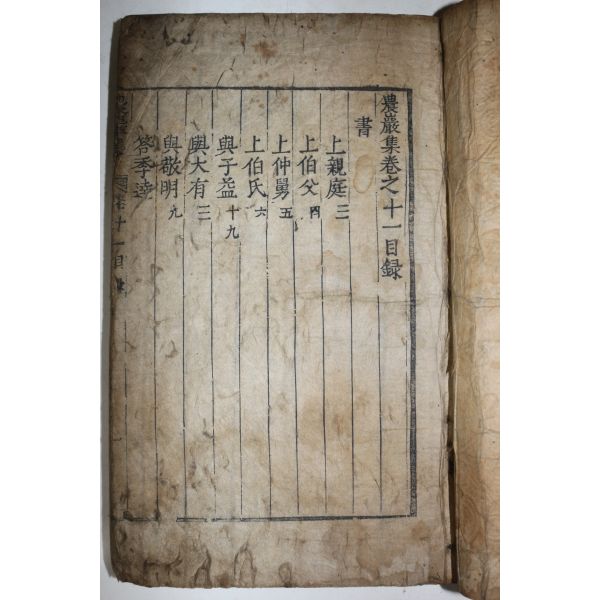 農巖集卷之十一目録
書
上親庭三
上伯父四
上仲舅五
上伯氏六
與子益十九
與大有二
與敬明九
答季達
卷十一目